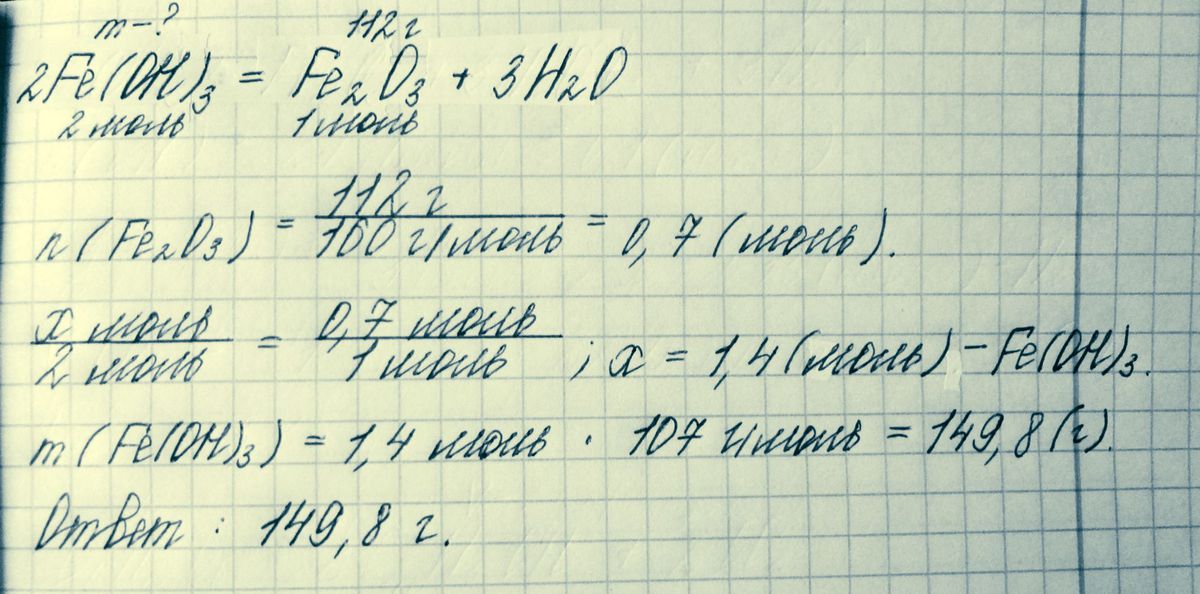 m-? 112г
2Fe(OH)₃ = Fe₂O₃ + 3H₂O
2 моль 1 моль
n(Fe₂O₃) = 112 г / 160 г/моль = 0,7 (моль).
x моль / 2 моль = 0,7 моль / 1 моль ; x = 1,4 (моль) - Fe(OH)₃.
m(Fe(OH)₃) = 1,4 моль · 107 г/моль = 149,8 (г).
Ответ : 149,8 г.